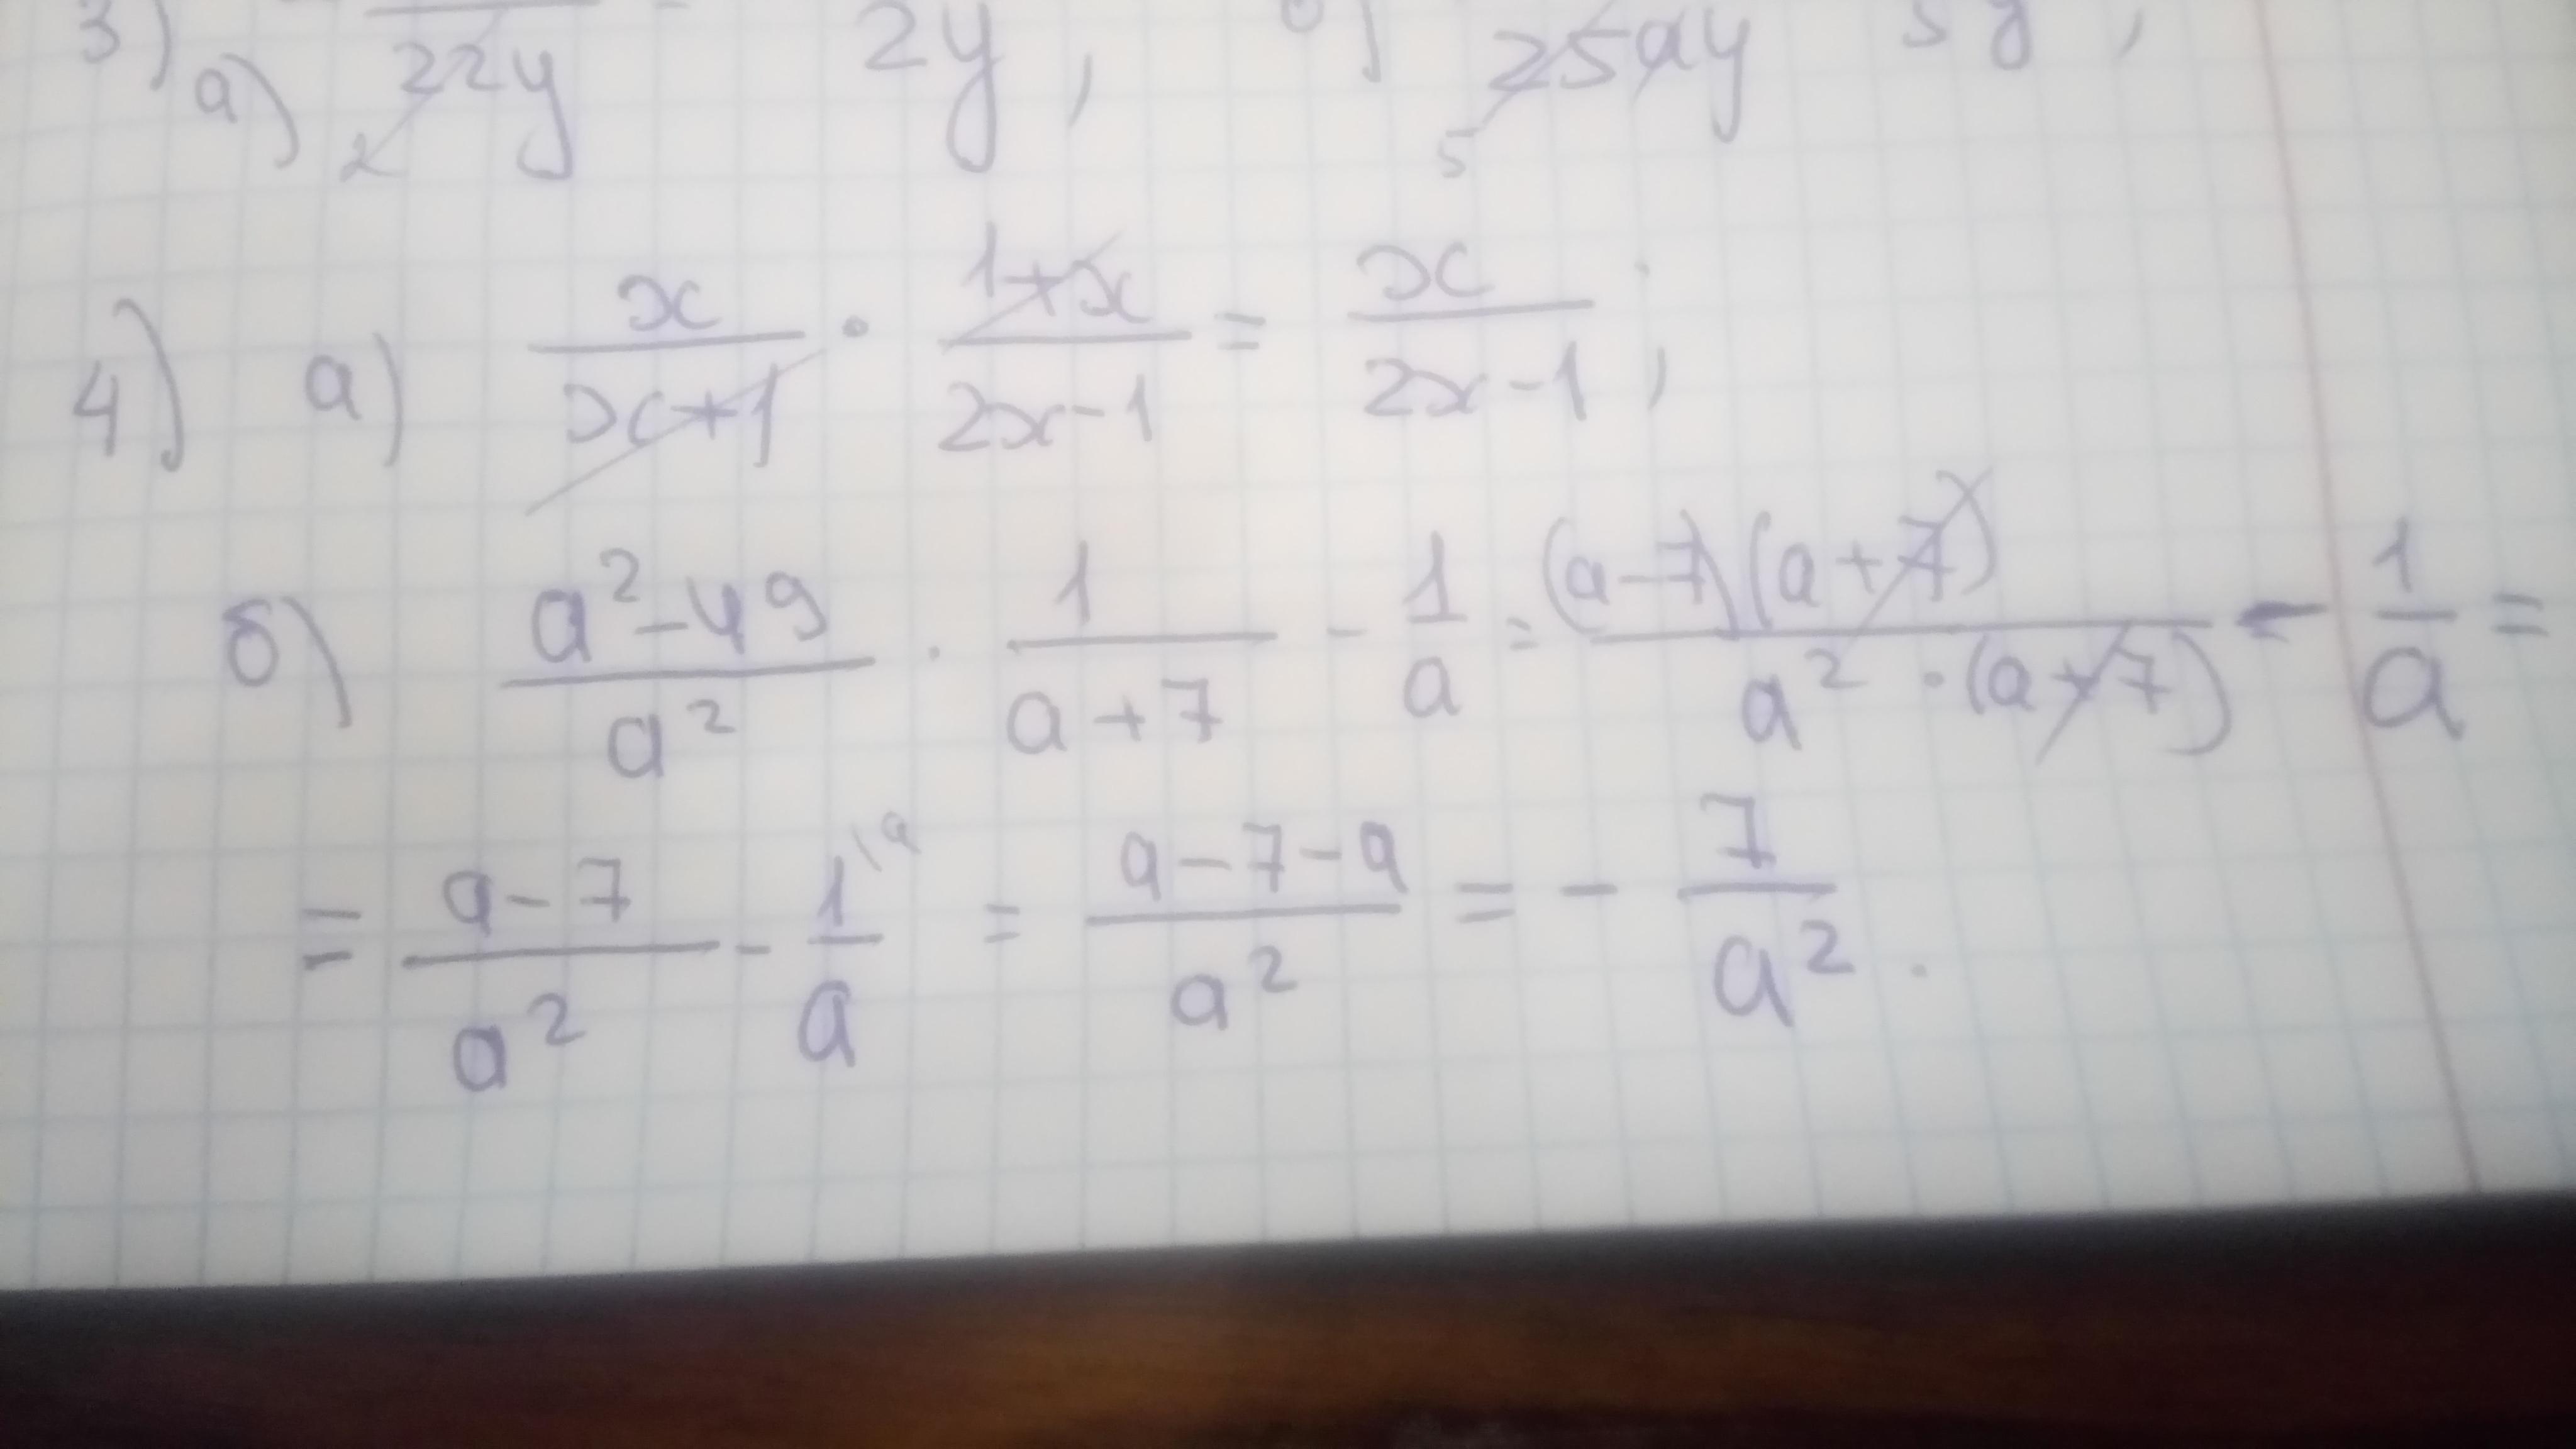 3) a) 22y 2 2y, 25ay 5
4) a) x/(x+1) · (1+x)/(2x-1) = x/(2x-1);
б) (a²-49)/a² · 1/(a+7) - 1/a = (a-7)(a+7)/(a²·(a+7)) - 1/a =
= (a-7)/a² - 1/a \a = (a-7-a)/a² = - 7/a².